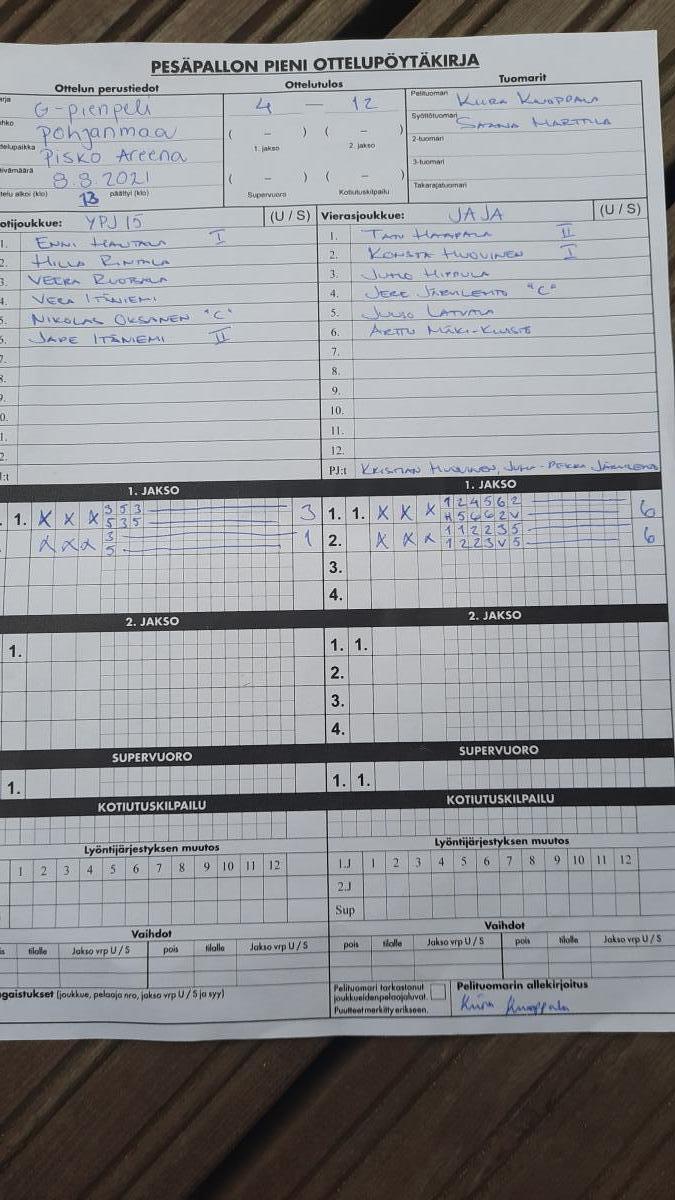 PESÄPALLON PIENI OTTELUPÖYTÄKIRJA
Ottelun perustiedot Ottelutulos Tuomarit
rja G-pienpeli 4 – 12 Pelituomari Kiira Knuoppala
hko Pohjanmaa ( – ) ( – ) Syöttötuomari Saana Marttila
telupaikka Pisko Areena 1. jakso 2. jakso 2-tuomari
ivämäärä 8.8.2021 ( – ) ( – ) 3-tuomari
telu alkoi (klo) 13 päättyi (klo) Supervuoro Kotiutuskilpailu Takarajatuomari
otijoukkue: YPJ 15 (U / S) Vierasjoukkue: JAJA (U / S)
1. Enni Hautala I 1. Tatu Haapala II
2. Hilla Rintala 2. Konsta Huovinen I
3. Veera 3. Juho Hippula
4. Vera Itäniemi 4. Jere Järvilehto "C"
5. Nikolas Oksanen "C" 5. Juuso Latvala
6. Jape Itäniemi II 6. Arttu Mäki-
7. 7.
8. 8.
9. 9.
0. 10.
1. 11.
2. 12.
J:t PJ:t Kristian Huovinen, Juha-Pekka Järvilehto
1. JAKSO 1. JAKSO
1. X X X 3 5 3 3 1. 1. X X X 1 2 4 5 6 2 6
5 3 5 5 6 6 2 V
X X X 3 1 2. X X X 1 1 2 2 3 5 6
5 1 2 2 3 V 5
3.
4.
2. JAKSO 2. JAKSO
1. 1. 1.
2.
3.
4.
SUPERVUORO SUPERVUORO
1. 1. 1.
KOTIUTUSKILPAILU KOTIUTUSKILPAILU
Lyöntijärjestyksen muutos Lyöntijärjestyksen muutos
1 2 3 4 5 6 7 8 9 10 11 12 1.J 1 2 3 4 5 6 7 8 9 10 11 12
2.J
Sup
Vaihdot Vaihdot
is tilalle Jakso vrp U / S pois tilalle Jakso vrp U / S pois tilalle Jakso vrp U / S pois tilalle Jakso vrp U / S
ngaistukset (joukkue, pelaaja nro, jakso vrp U / S ja syy) Pelituomari tarkastanut Pelituomarin allekirjoitus
joukkueiden pelaajaluvat.
Puutteet merkitty erikseen. Kiira Knuoppala